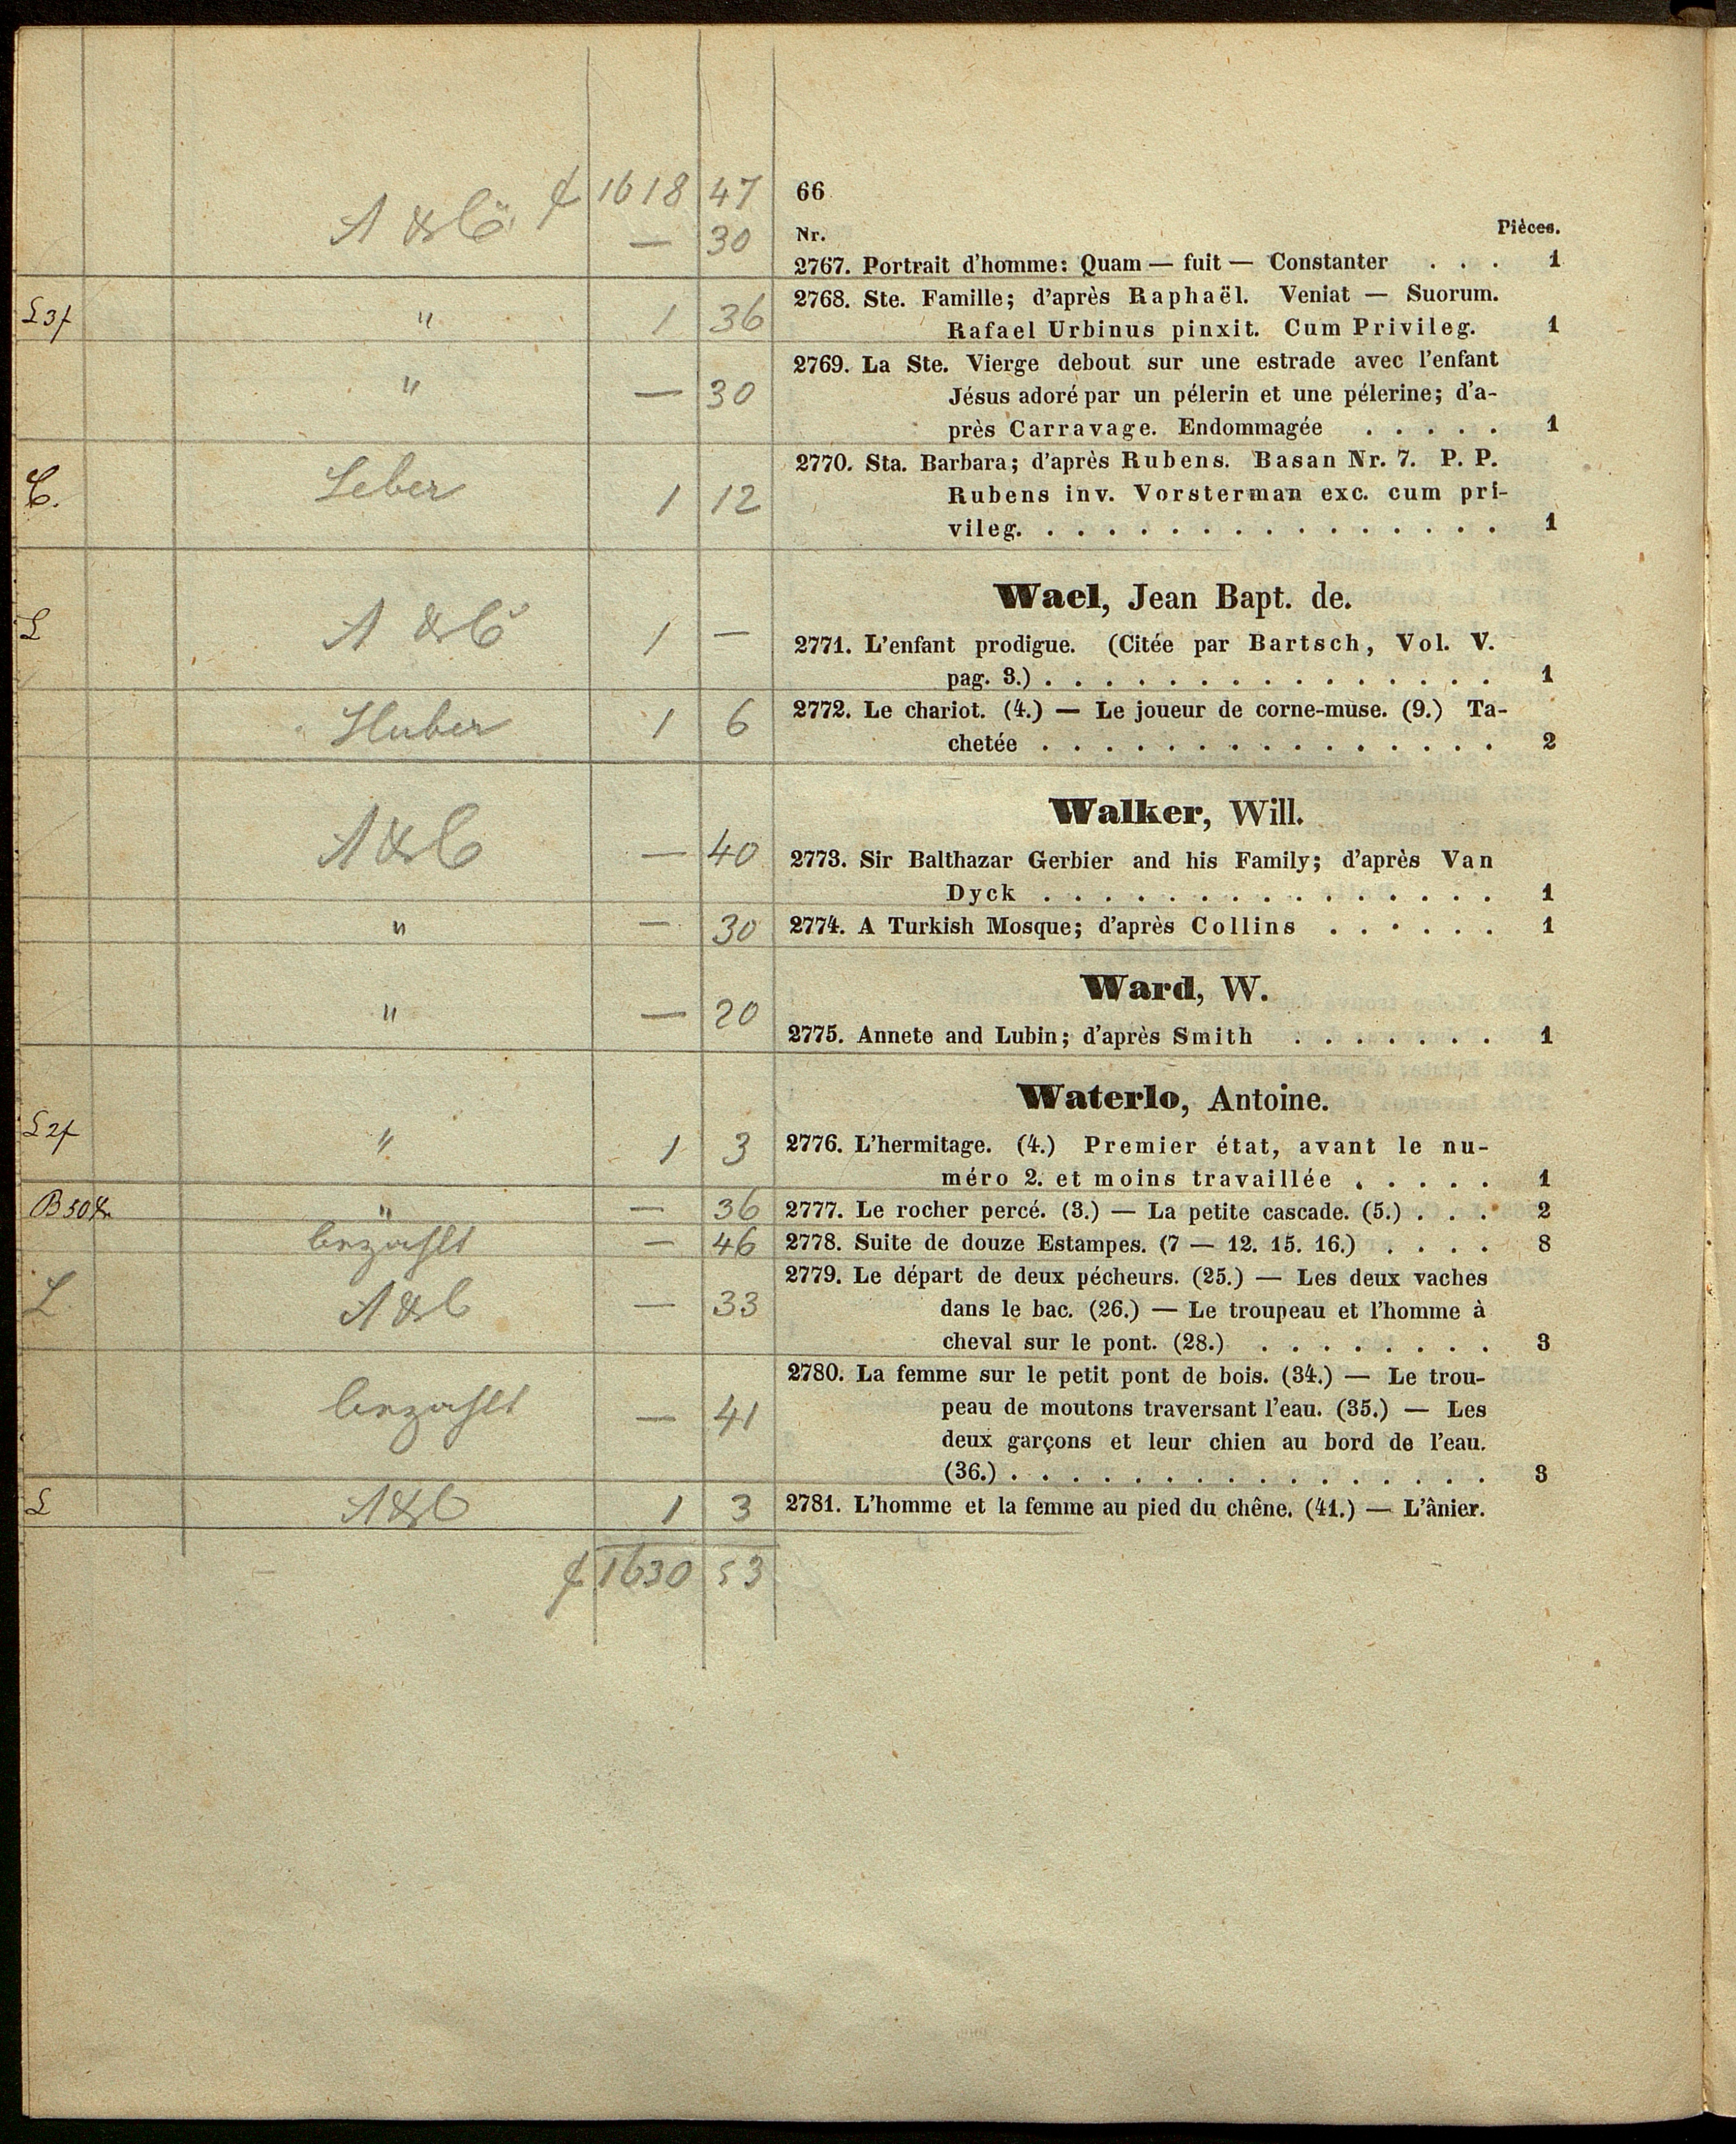 f 1618 47
66
A & Co — 30
Nr. Pièces.
2767. Portrait d'homme: Quam — fuit — Constanter . . . 1
L 3f " 1 36
2768. Ste. Famille; d'après Raphaël. Veniat — Suorum.
Rafael Urbinus pinxit. Cum Privileg. 1
" — 30
2769. La Ste. Vierge debout sur une estrade avec l'enfant
Jésus adoré par un pélerin et une pélerine; d'a-
près Carravage. Endommagée . . . . . 1
C. Leber 1 12
2770. Sta. Barbara; d'après Rubens. Basan Nr. 7. P. P.
Rubens inv. Vorsterman exc. cum pri-
vileg. . . . . . . . . . . . . . . . 1
Wael, Jean Bapt. de.
L A & Co 1 —
2771. L'enfant prodigue. (Citée par Bartsch, Vol. V.
pag. 3.) . . . . . . . . . . . . . . . 1
Huber 1 6
2772. Le chariot. (4.) — Le joueur de corne-muse. (9.) Ta-
chetée . . . . . . . . . . . . . . . 2
Walker, Will.
A & C — 40
2773. Sir Balthazar Gerbier and his Family; d'après Van
Dyck . . . . . . . . . . . . . . . 1
" — 30
2774. A Turkish Mosque; d'après Collins . . . . . . 1
Ward, W.
" — 20
2775. Annete and Lubin; d'après Smith . . . . . . . 1
Waterlo, Antoine.
L 2f " 1 3
2776. L'hermitage. (4.) Premier état, avant le nu-
méro 2. et moins travaillée . . . . . 1
B 50 Xr " — 36
2777. Le rocher percé. (3.) — La petite cascade. (5.) . . . 2
bezahlt — 46
2778. Suite de douze Estampes. (7 — 12. 15. 16.) . . . . 8
L. A & C — 33
2779. Le départ de deux pécheurs. (25.) — Les deux vaches
dans le bac. (26.) — Le troupeau et l'homme à
cheval sur le pont. (28.) . . . . . . . . 3
bezahlt — 41
2780. La femme sur le petit pont de bois. (34.) — Le trou-
peau de moutons traversant l'eau. (35.) — Les
deux garçons et leur chien au bord de l'eau.
(36.) . . . . . . . . . . . . . . . . 3
L A & C 1 3
2781. L'homme et la femme au pied du chêne. (41.) — L'ânier.
f 1630 53